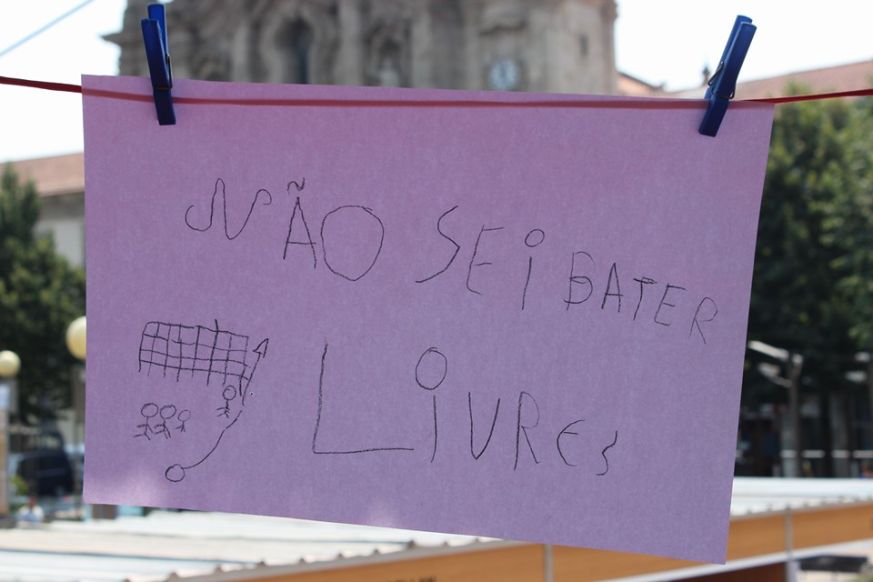 NÃO SEi BATER
LiVRES